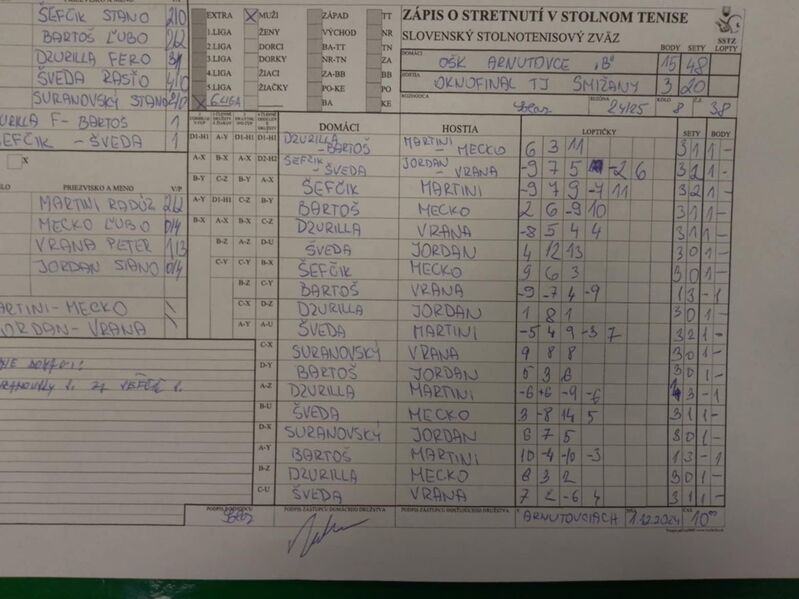 ŠEFČIK STANO 2/0
BARTOŠ ĽUBO 2/2
DZURILLA FERO 3/1
ŠVEDA RASŤO 4/0
SURANOVSKÝ STANO 2/0
URILLA F- BARTOŠ 1
SEFČIK - ŠVEDA 1
X
PRIEZVISKO A MENO V/P
MARTINI RADÚZ 2/2
MECKO ĽUBO 0/4
VRANA PETER 1/3
JORDAN STANO 0/4
ARTINI-MECKO
JORDAN-VRANA
EXTRA MUŽI ZÁPAD TT
1.LIGA ŽENY VÝCHOD NR
2.LIGA DORCI BA-TT TN
3.LIGA DORKY NR-TN ZA
4.LIGA ŽIACI ZA-BB BB
5.LIGA ŽIAČKY PO-KE PO
6.LIGA BA KE
ZÁPIS O STRETNUTÍ V STOLNOM TENISE
SLOVENSKÝ STOLNOTENISOVÝ ZVÄZ
SSTZ
BODY SETY LOPTY
DOMÁCI OŠK ARNUTOVCE "B" 15 48
HOSTIA OKNOFINAL TJ SMIŽANY 3 20
ROZHODCA SEZÓNA 24/25 KOLO 8 Č.Z. 38
DOMÁCI HOSTIA LOPTIČKY SETY BODY
D1-H1 A-Y D1-H1 D1-H1 DZURILLA - BARTOŠ MARTINI - MECKO 6 3 11 3 1 1 -
A-X B-X A-X D2-H2 ŠEFČIK - ŠVEDA JORDAN - VRANA -9 7 5 -2 6 3 2 1 -
B-Y C-Z B-Y A-X ŠEFČIK MARTINI -9 7 9 -7 11 3 2 1 -
A-Y D1-H1 C-Z B-Y BARTOŠ MECKO 2 6 -9 10 3 1 1 -
B-X A-X B-X C-Z DZURILLA VRANA -8 5 4 4 3 1 1 -
B-Z A-Z D-U ŠVEDA JORDAN 4 12 13 3 0 1 -
C-Y C-Y B-X ŠEFČIK MECKO 9 6 3 3 0 1 -
B-Z C-Y BARTOŠ VRANA -9 -7 4 -9 1 3 - 1
C-X D-Z DZURILLA JORDAN 1 8 1 3 0 1 -
A-Y A-U ŠVEDA MARTINI -5 4 9 -3 7 3 2 1 -
C-X SURANOVSKÝ VRANA 9 8 8 3 0 1 -
D-Y BARTOŠ JORDAN 5 3 6 3 0 1 -
A-Z DZURILLA MARTINI -6 +6 -9 -6 1 3 - 1
B-U ŠVEDA MECKO 3 -8 14 5 3 1 1 -
D-X SURANOVSKÝ JORDAN 6 7 5 3 0 1 -
A-Y BARTOŠ MARTINI 10 -4 -10 -3 1 3 - 1
B-Z DZURILLA MECKO 8 3 2 3 0 1 -
C-U ŠVEDA VRANA 7 2 -6 4 3 1 1 -
PODPIS ROZHODCU PODPIS ZÁSTUPCU DOMÁCEHO DRUŽSTVA PODPIS ZÁSTUPCU HOSŤUJÚCEHO DRUŽSTVA V ARNUTOVCIACH DŇA 1.12.2024 ČAS 10⁰⁰